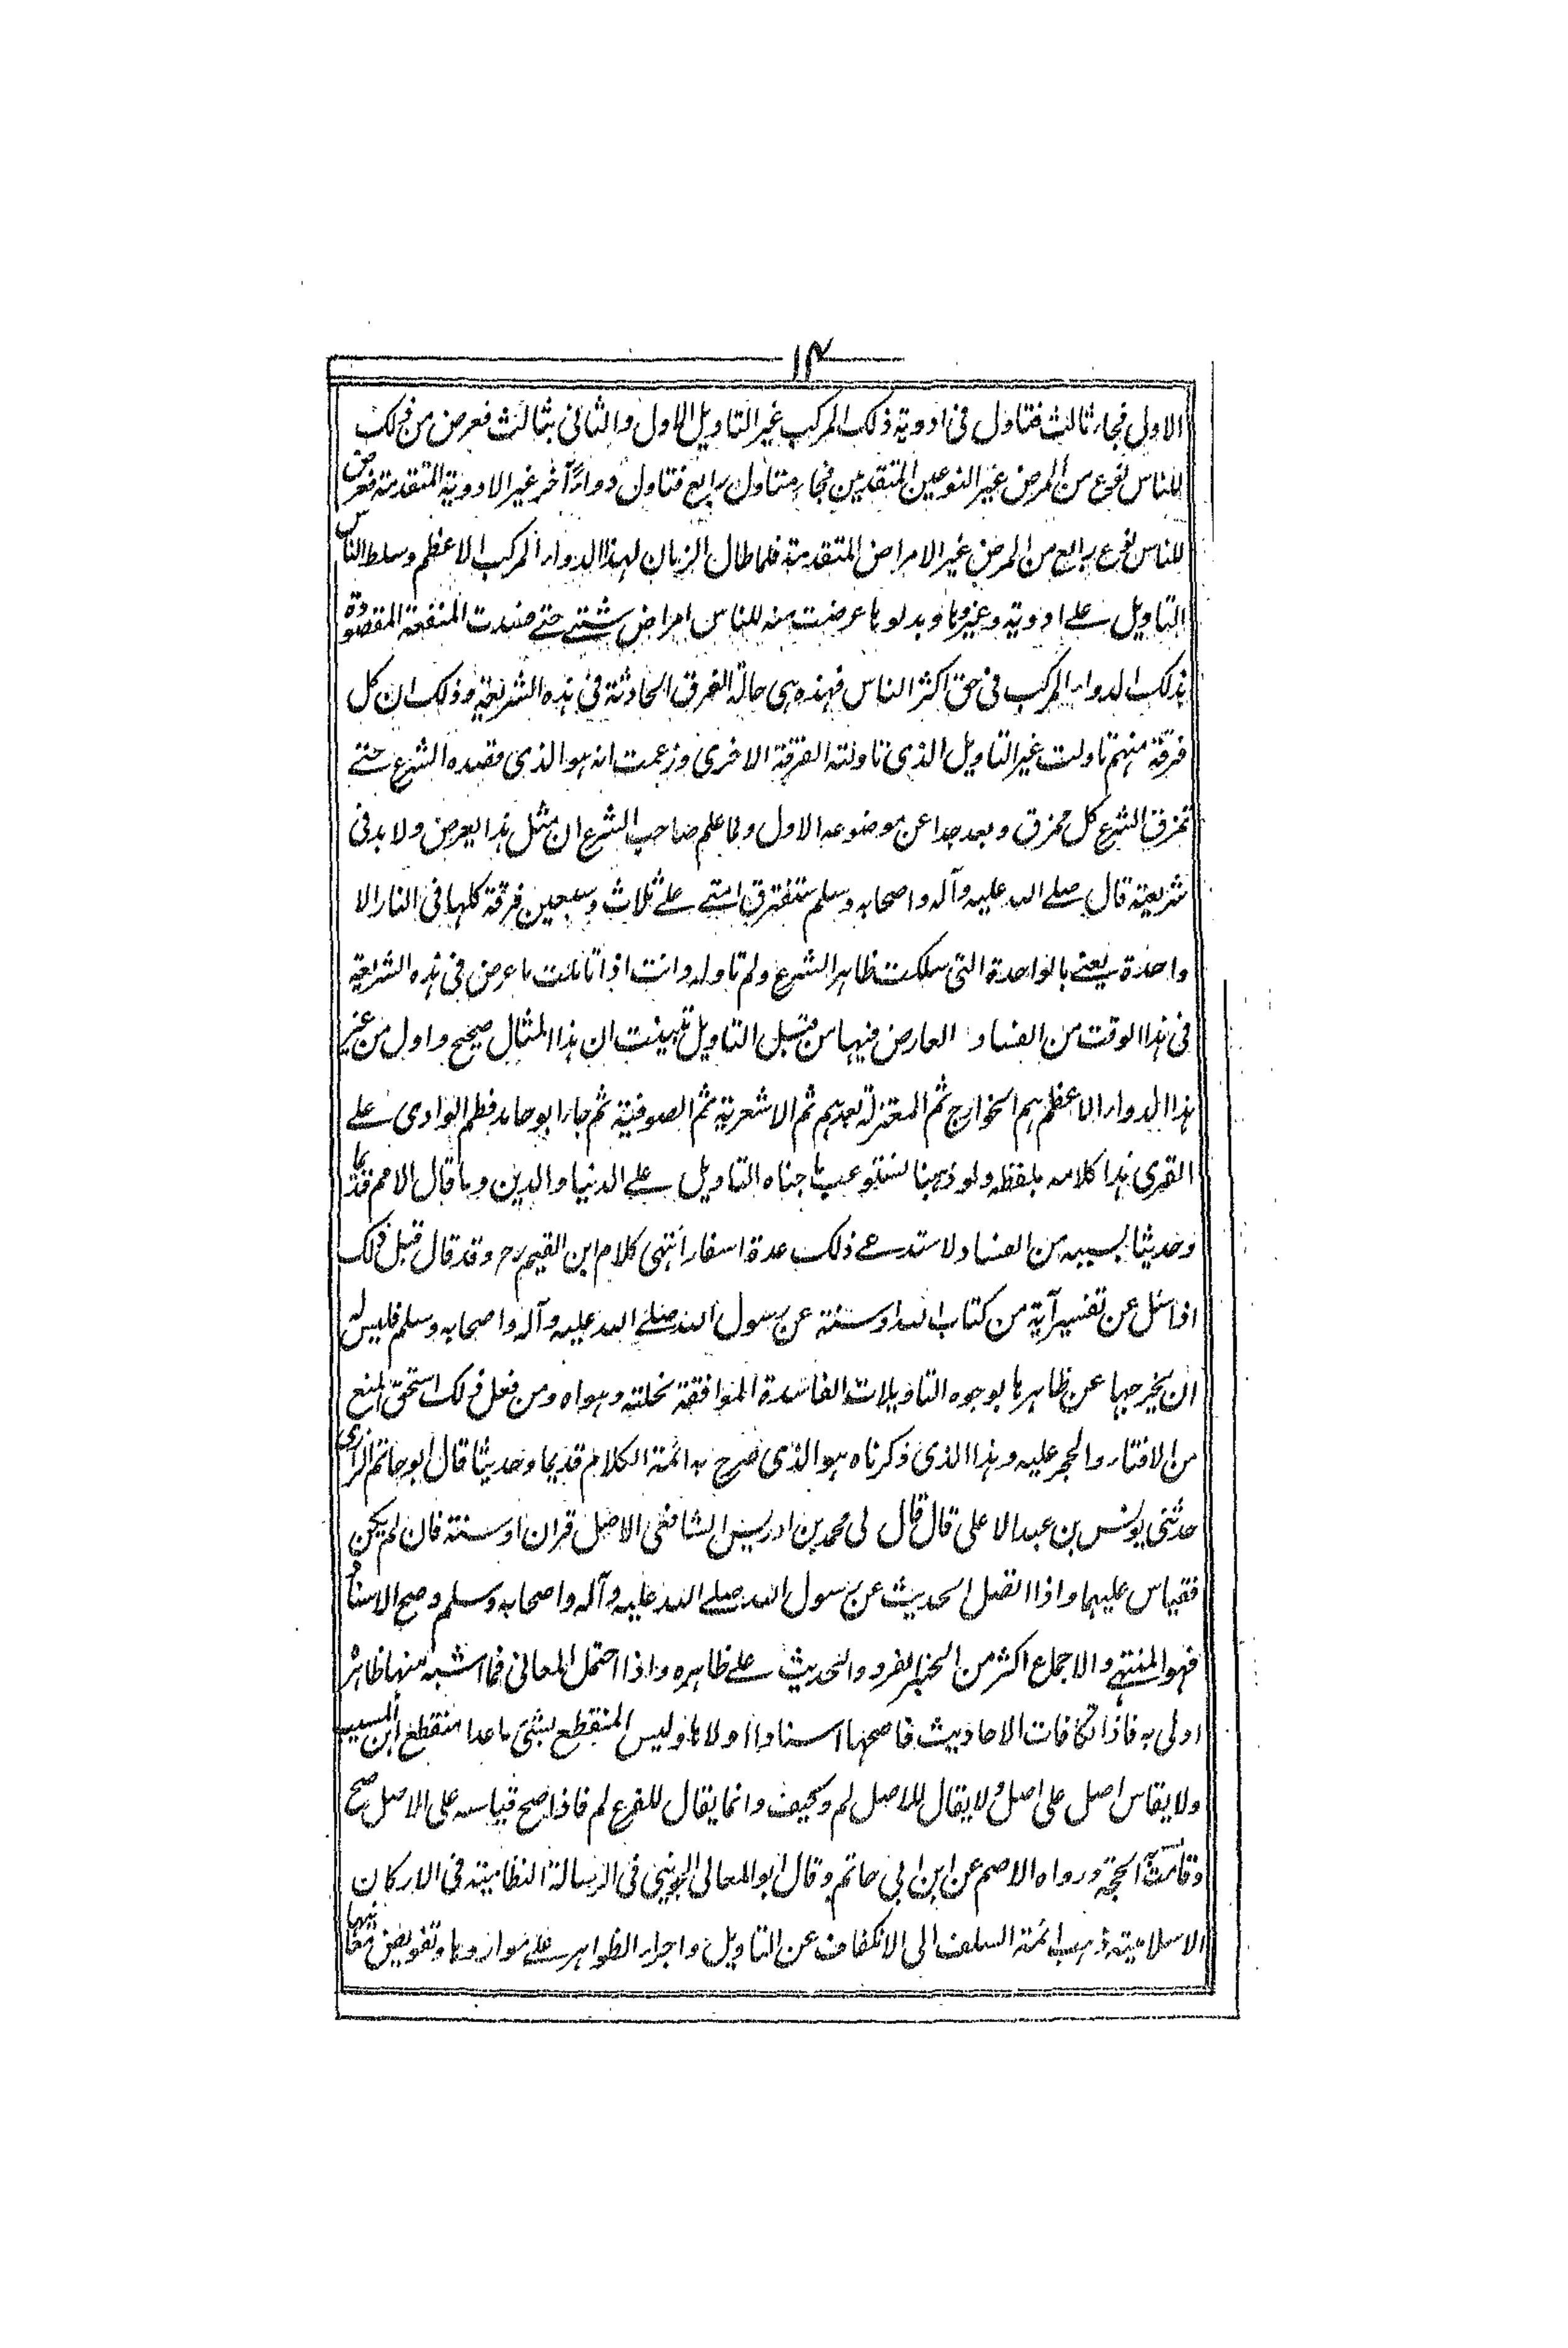 ١٤
الاولى فجاء ثالث فتاول فى ادوية ذلك المركب غير التاويل الاول والثانى بثالث فعرض من ذلك
للناس نوع من المرض غير النوعين المتقدمين فجاء متناول رابع فتاول دواءً آخر غير الادوية المتقدمة فعرض
للناس نوع رابع من المرض غير الامراض المتقدمة فلما طال الزمان لهذا الدواء المركب الاعظم وسلط الناس
التاويل على ادوية وغيروها وبدلوها عرضت منه للناس امراض شتى حتى فسدت المنفعة المقصودة
بذلك الدواء المركب فى حق اكثر الناس فهذه هى حالة الفرق الحادثة فى هذه الشريعة وذلك ان كل
فرقة منهم تاولت غير التاويل الذى تاولته الفرقة الاخرى وزعمت انه هو الذى قصده الشرع حتى
تمزق الشرع كل ممزق وبعد جدا عن موضوعه الاول ولما علم صاحب الشرع ان مثل هذا يعرض ولا بد فى
شريعته قال صلى الله عليه وآله واصحابه وسلم ستفترق امتى على ثلاث وسبعين فرقة كلها فى النار الا
واحدة يعنى بالواحدة التى سلكت ظاهر الشرع ولم تاوله وانت اذا تاملت ما عرض فى هذه الشريعة
فى هذا الوقت من الفساد العارض فيها من قبل التاويل تبينت ان هذا المثال صحيح واول من غير
هذا الدواء الاعظم هم الخوارج ثم المعتزلة بعدهم ثم الاشعرية ثم الصوفية ثم جاء ابو حامد فطم الوادى على
القرى هذا كلامه بلفظه ولو ذهبنا نستوعب ما جناه التاويل على الدنيا والدين وما قال الامم قديما
وحديثا بسببه من الفساد لاستدعى ذلك عدة اسفار انتهى كلام ابن القيم رح وقد قال قبل ذلك
اذا سئل عن تفسير آية من كتاب الله او سنة عن رسول الله صلى الله عليه وآله واصحابه وسلم فليس له
ان يخرجها عن ظاهرها بوجوه التاويلات الفاسدة الموافقة نحلته وهواه ومن فعل ذلك استحق المنع
من الافتاء والحجر عليه وهذا الذى ذكرناه هو الذى صرح به ائمة الكلام قديما وحديثا قال ابو حاتم الرازى
حدثنى يونس بن عبد الاعلى قال قال لى محمد بن ادريس الشافعى الاصل قران او سنة فان لم يكن
فقياس عليهما واذا اتصل الحديث عن رسول الله صلى الله عليه وآله واصحابه وسلم وصح الاسناد
فهو المنتهى والاجماع اكثر من الخبر الفرد والحديث على ظاهره واذا احتمل المعانى فما اشبه منها ظاهره
اولى به فاذا تكافات الاحاديث فاصحها اسنادا اولاها وليس المنقطع بشئ ما عدا منقطع ابن المسيب
ولا يقاس اصل على اصل ولا يقال للاصل لم وكيف وانما يقال للفرع لم فاذا صح قياسه على الاصل صح
وقامت الحجة ورواه الاصم عن ابن ابى حاتم وقال ابو المعالى الجوينى فى الرسالة النظامية فى الاركان
الاسلامية ذهب ائمة السلف الى الانكفاف عن التاويل واجراء الظواهر على مواردها وتفويض معانيها